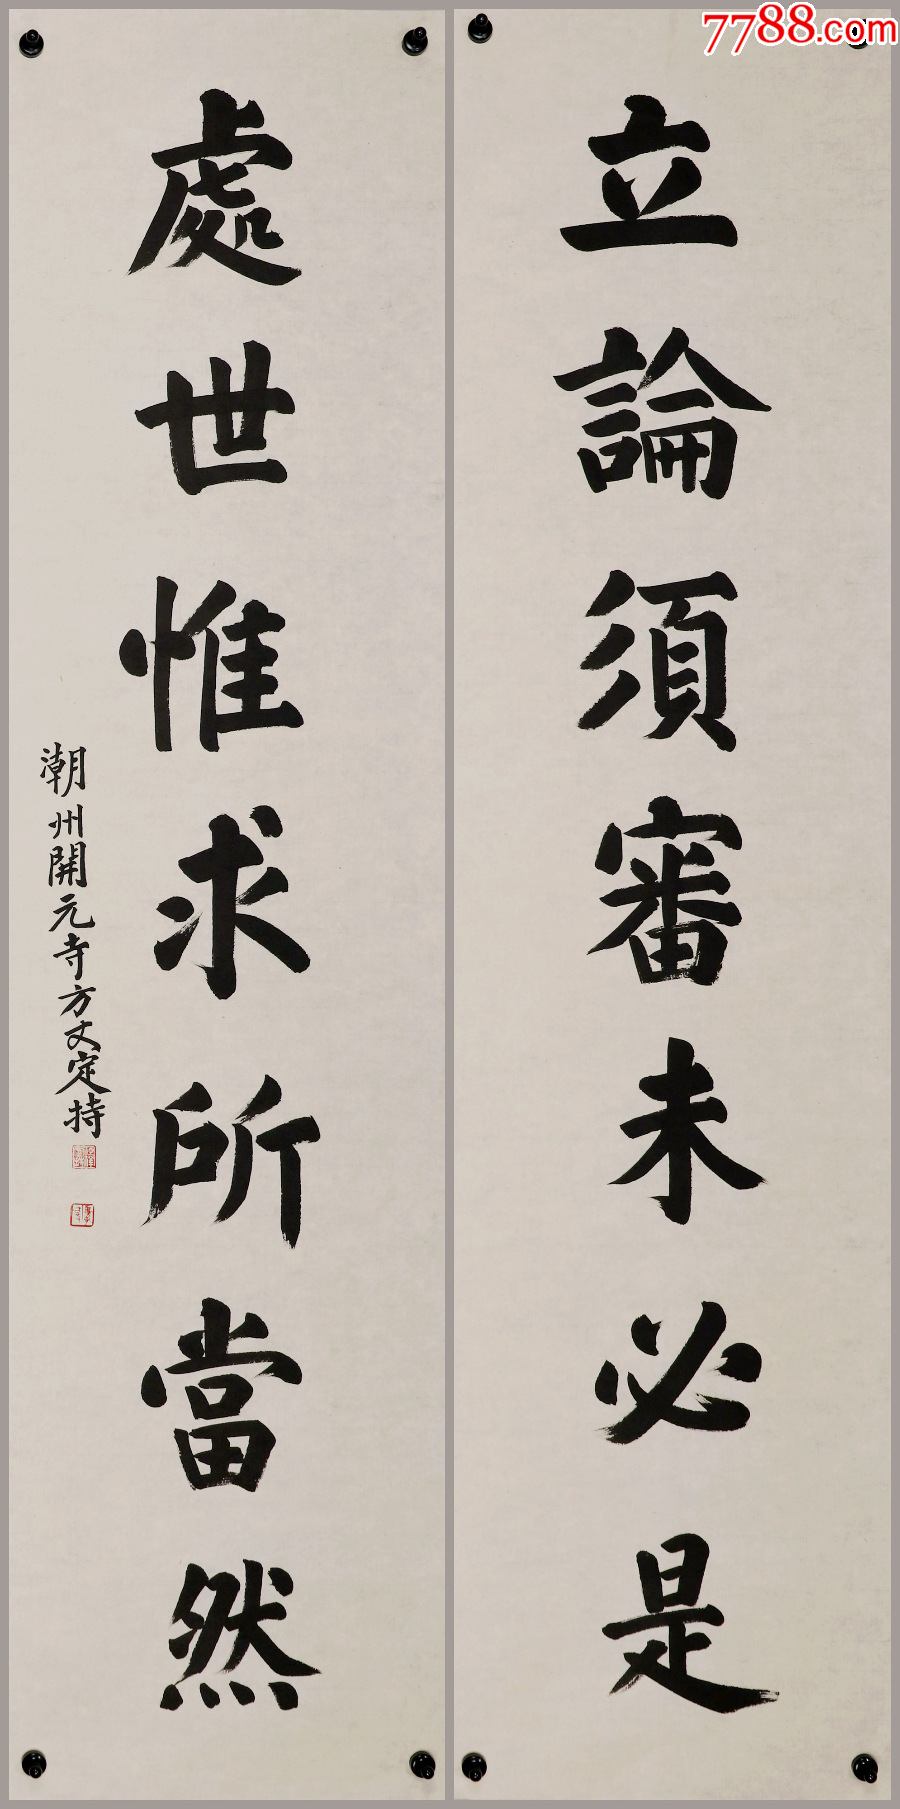 7788.com
立論須審未必是
處世惟求所當然
潮州開元寺方丈定持